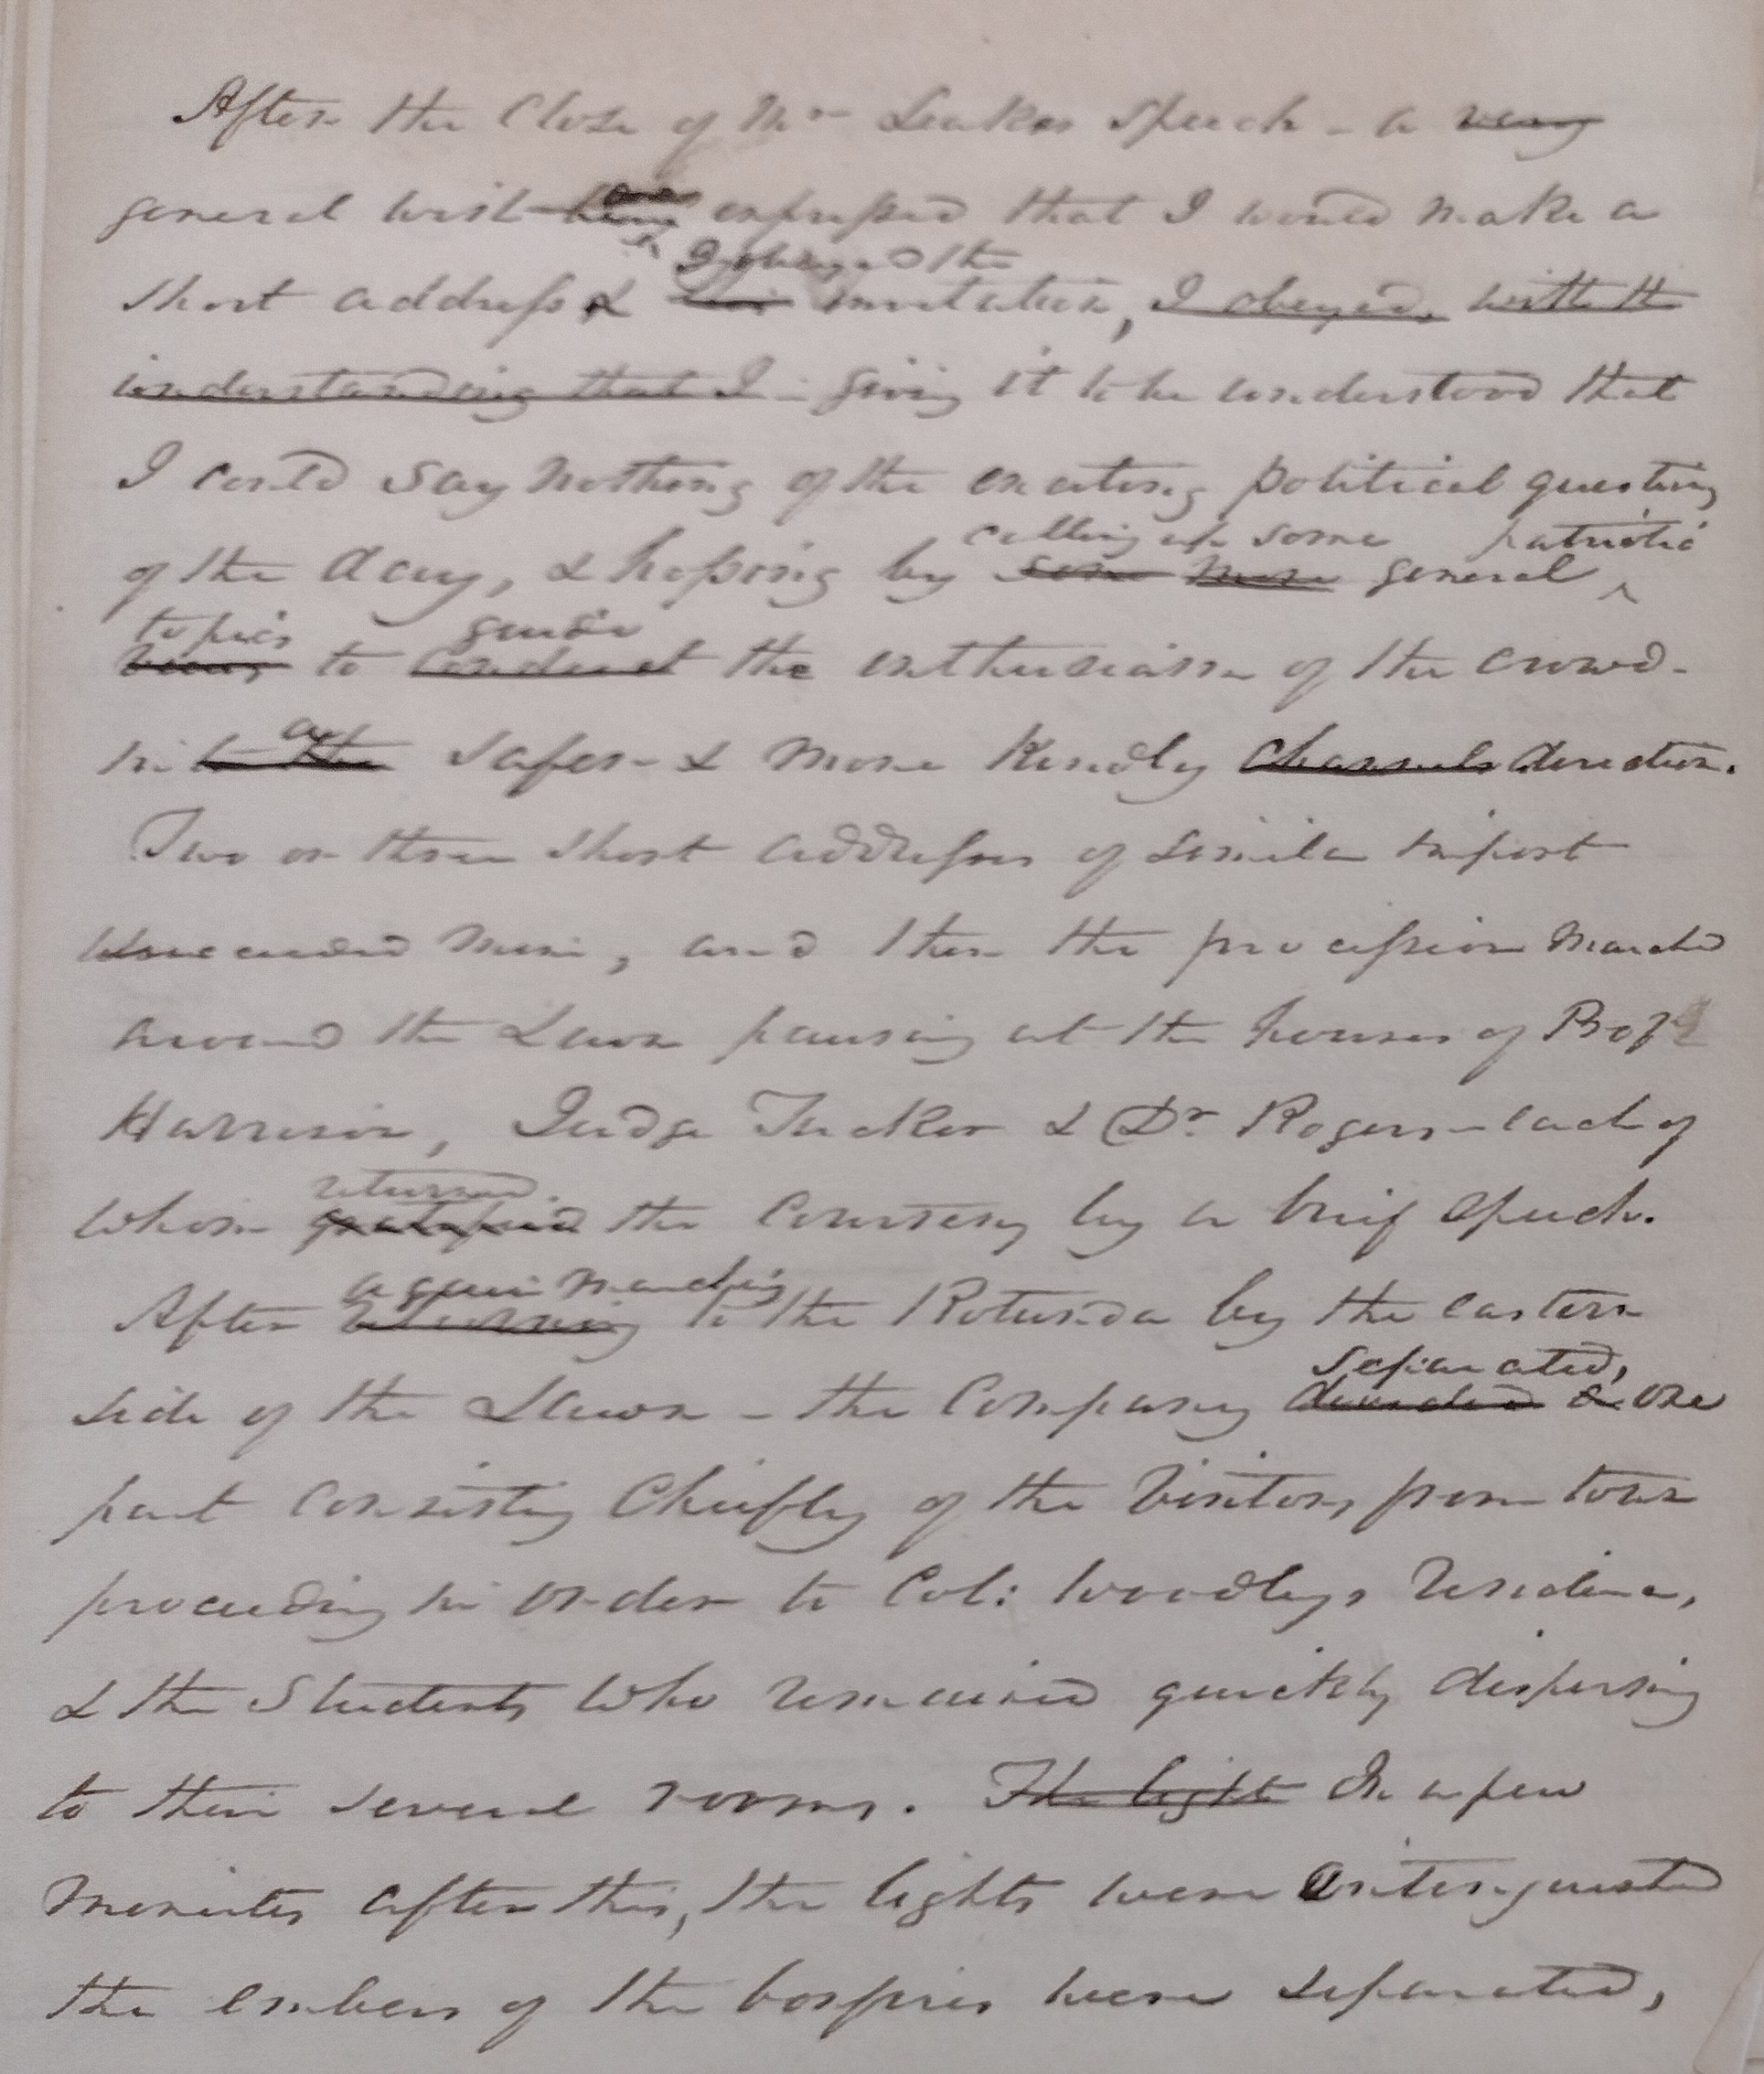 After the Close of Mr Leakes Speech - a very
general wish being expressed that I would make a
I obeyed the
short address & this invitation, I obeyed, with the
understanding that I - giving it to be understood that
I could say nothing of the exciting political questions
calling up some patriotic
of the day, & hoping by some more general
topics guide
views to conduct the enthusiasm of the crowd -
a
into the safer & more kindly channels direction.
Two or three short addresses of similar import
succeeded mine, and then the procession marched
around the Lawn pausing at the houses of Prof
Harrison, Judge Tucker & Dr Rogers - each of
returned
whom gratified the courtesy by a brief speech.
again marching
After returning to the Rotunda by the eastern
separated,
side of the Lawn - the Company divided & one
part consisting chiefly of the Visitors from town
proceeding in order to Col: Woodleys residence,
& the Students who remained quickly dispersing
to their several rooms. The light In a few
minutes after this, the lights were extinguished
the embers of the bonfires were separated,